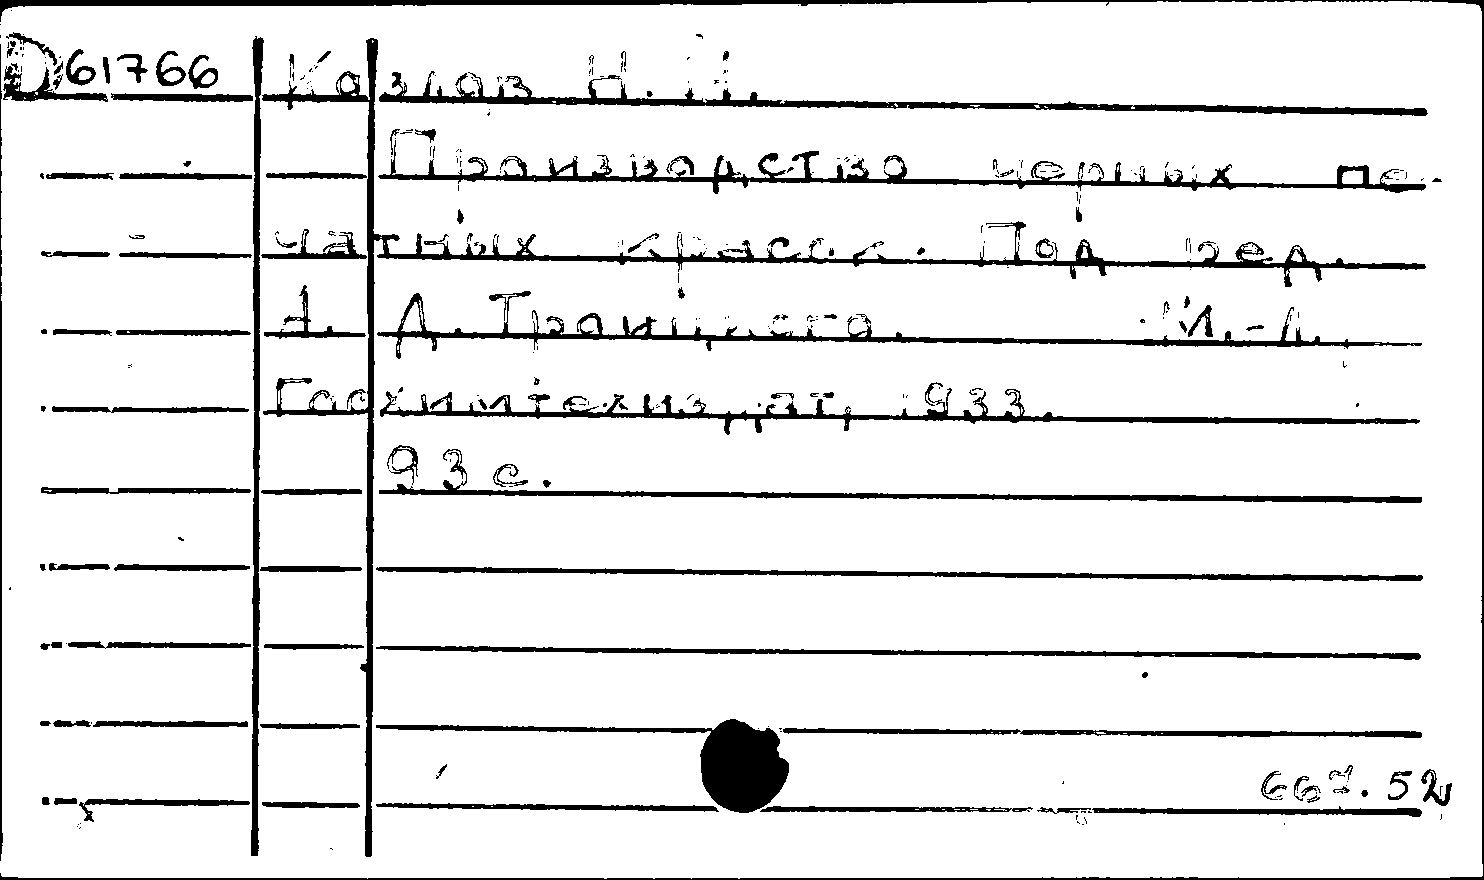 D61766 Козлов Н. Н.
Производство черных пе-
чатных красок. Под ред.
А. Д. Троицкого. М.-Л.,
Госхимтехиздат, 1933.
93 с.
667.52